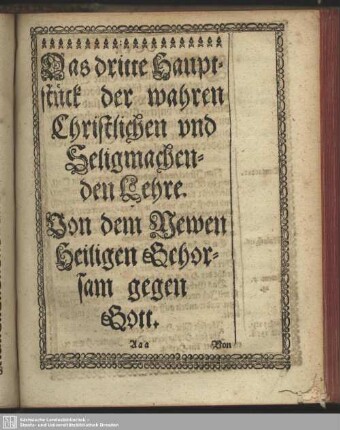 Das dritte Haupt-
stück der wahren
Christlichen vnd
Seligmachen-
den Lehre.
Von dem Newen
Heiligen Gehor-
sam gegen
Gott.
Aaa Von
Sächsische Landesbibliothek -
Staats- und Universitätsbibliothek Dresden